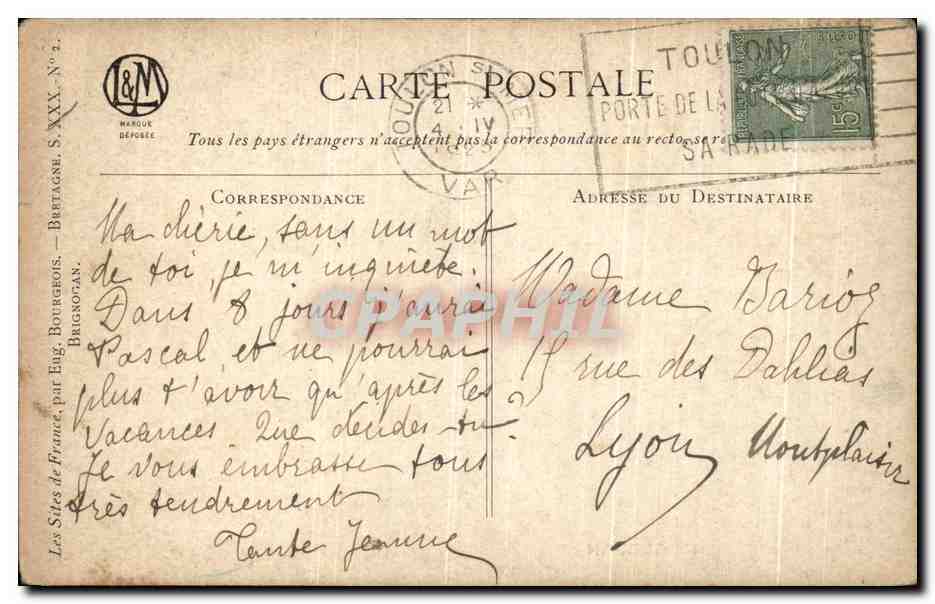 L&M
MARQUE
DÉPOSÉE
CARTE POSTALE
Tous les pays étrangers n'acceptent pas la correspondance au recto, se re
TOULON
VAR
21 *
4 IV
TOULON
PORTE DE LA
SA RADE
15c
CORRESPONDANCE
ADRESSE DU DESTINATAIRE
Ma chérie, sans un mot
de toi, je m'inquiète.
Dans 8 jours j'aurai
Pascal et ne pourrai
plus t'avoir qu'après les
vacances. Que décides-tu?
Je vous embrasse tous
très tendrement
Tante Jeanne
Madame Barioz
15 rue des Dahlias
Lyon Montplaisir
Les Sites de France, par Eug. BOURGEOIS. — BRETAGNE. S. XXX. - N° 2.
BRIGNOGAN.
CPAPHIL